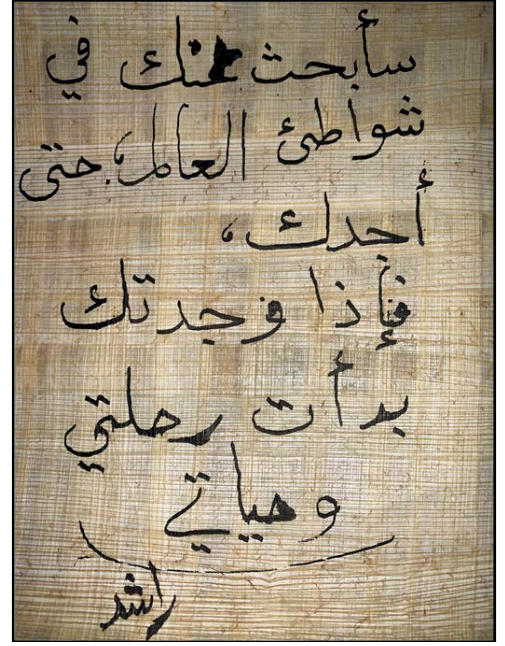 سأبحث عنك في
شواطئ العالم، حتى
أجدك،
فإذا وجدتك
بدأت رحلتي
وحياتي
راشد